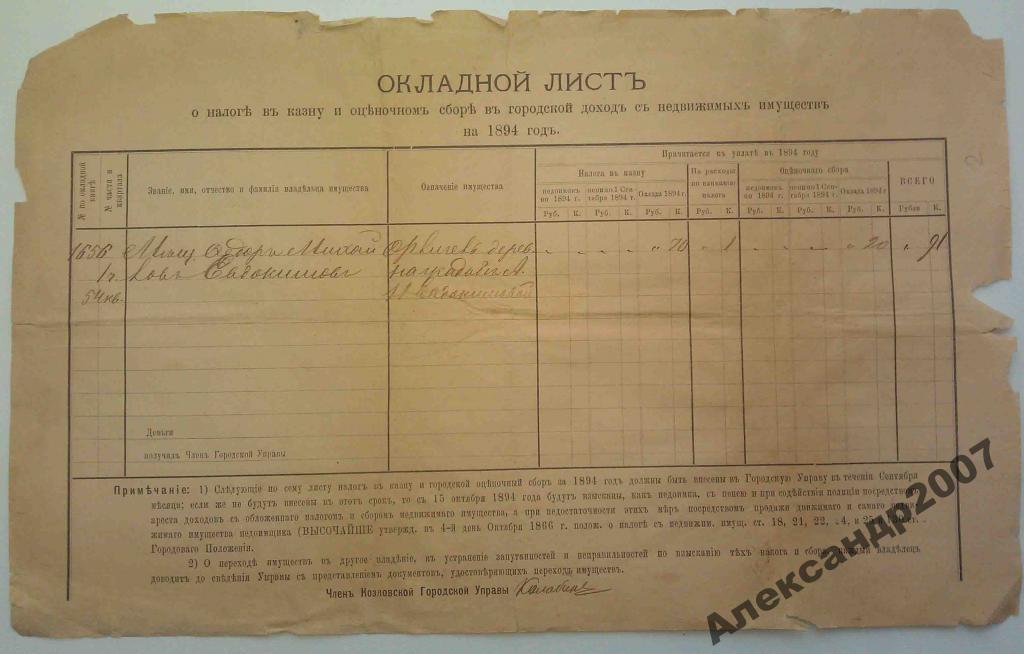 ОКЛАДНОЙ ЛИСТЪ
о налогѣ въ казну и оцѣночномъ сборѣ въ городской доходъ съ недвижимыхъ имуществъ
на 1894 годъ.
№ по окладной книгѣ
№ части и квартала
Званіе, имя, отчество и фамилія владѣльца имущества
Означеніе имущества
Причитается къ уплатѣ въ 1894 году
Налога въ казну
На расходы по взиманію налога
Оцѣночнаго сбора
ВСЕГО
недоимокъ по 1894 г.
пени по 1 Сентября 1894 г.
Оклада 1894 г.
недоимокъ по 1894 г.
пени по 1 Сентября 1894 г.
Оклада 1894 г.
Руб. К. Руб. К. Руб. К. Руб. К. Руб. К. Руб. К. Руб. К. Рубли К.
1656 Ѳедоръ Михай „ 70 „ 1 „ 20 „ 91
1 ч. ловъ Евдокимовъ
54 кв.
Деньги
получилъ Членъ Городской Управы
Примѣчаніе: 1) Слѣдующіе по сему листу налогъ въ казну и городской оцѣночный сборъ за 1894 годъ должны быть внесены въ Городскую Управу въ теченіи Сентября
мѣсяца; если же не будутъ внесены въ этотъ срокъ, то съ 15 октября 1894 года будутъ взысканы, какъ недоимка, съ пенею и при содѣйствіи полиціи посредствомъ
ареста доходовъ съ обложеннаго налогомъ и сборомъ недвижимаго имущества, а при недостаточности этихъ мѣръ посредствомъ продажи движимаго и самаго недви-
жимаго имущества недоимщика (ВЫСОЧАЙШЕ утвержд. въ 4-й день Октября 1866 г. полож. о налогѣ съ недвижим. имущ. ст. 18, 21, 22, 24, и
Городоваго Положенія).
2) О переходѣ имуществъ въ другое владѣніе, въ устраненіе запутанностей и неправильностей по взысканію тѣхъ налога и сбора, каждый владѣлецъ
доводитъ до свѣдѣнія Управы съ представленіемъ документовъ, удостовѣряющихъ переходъ имуществъ.
Членъ Козловской Городской Управы
2
Александр2007